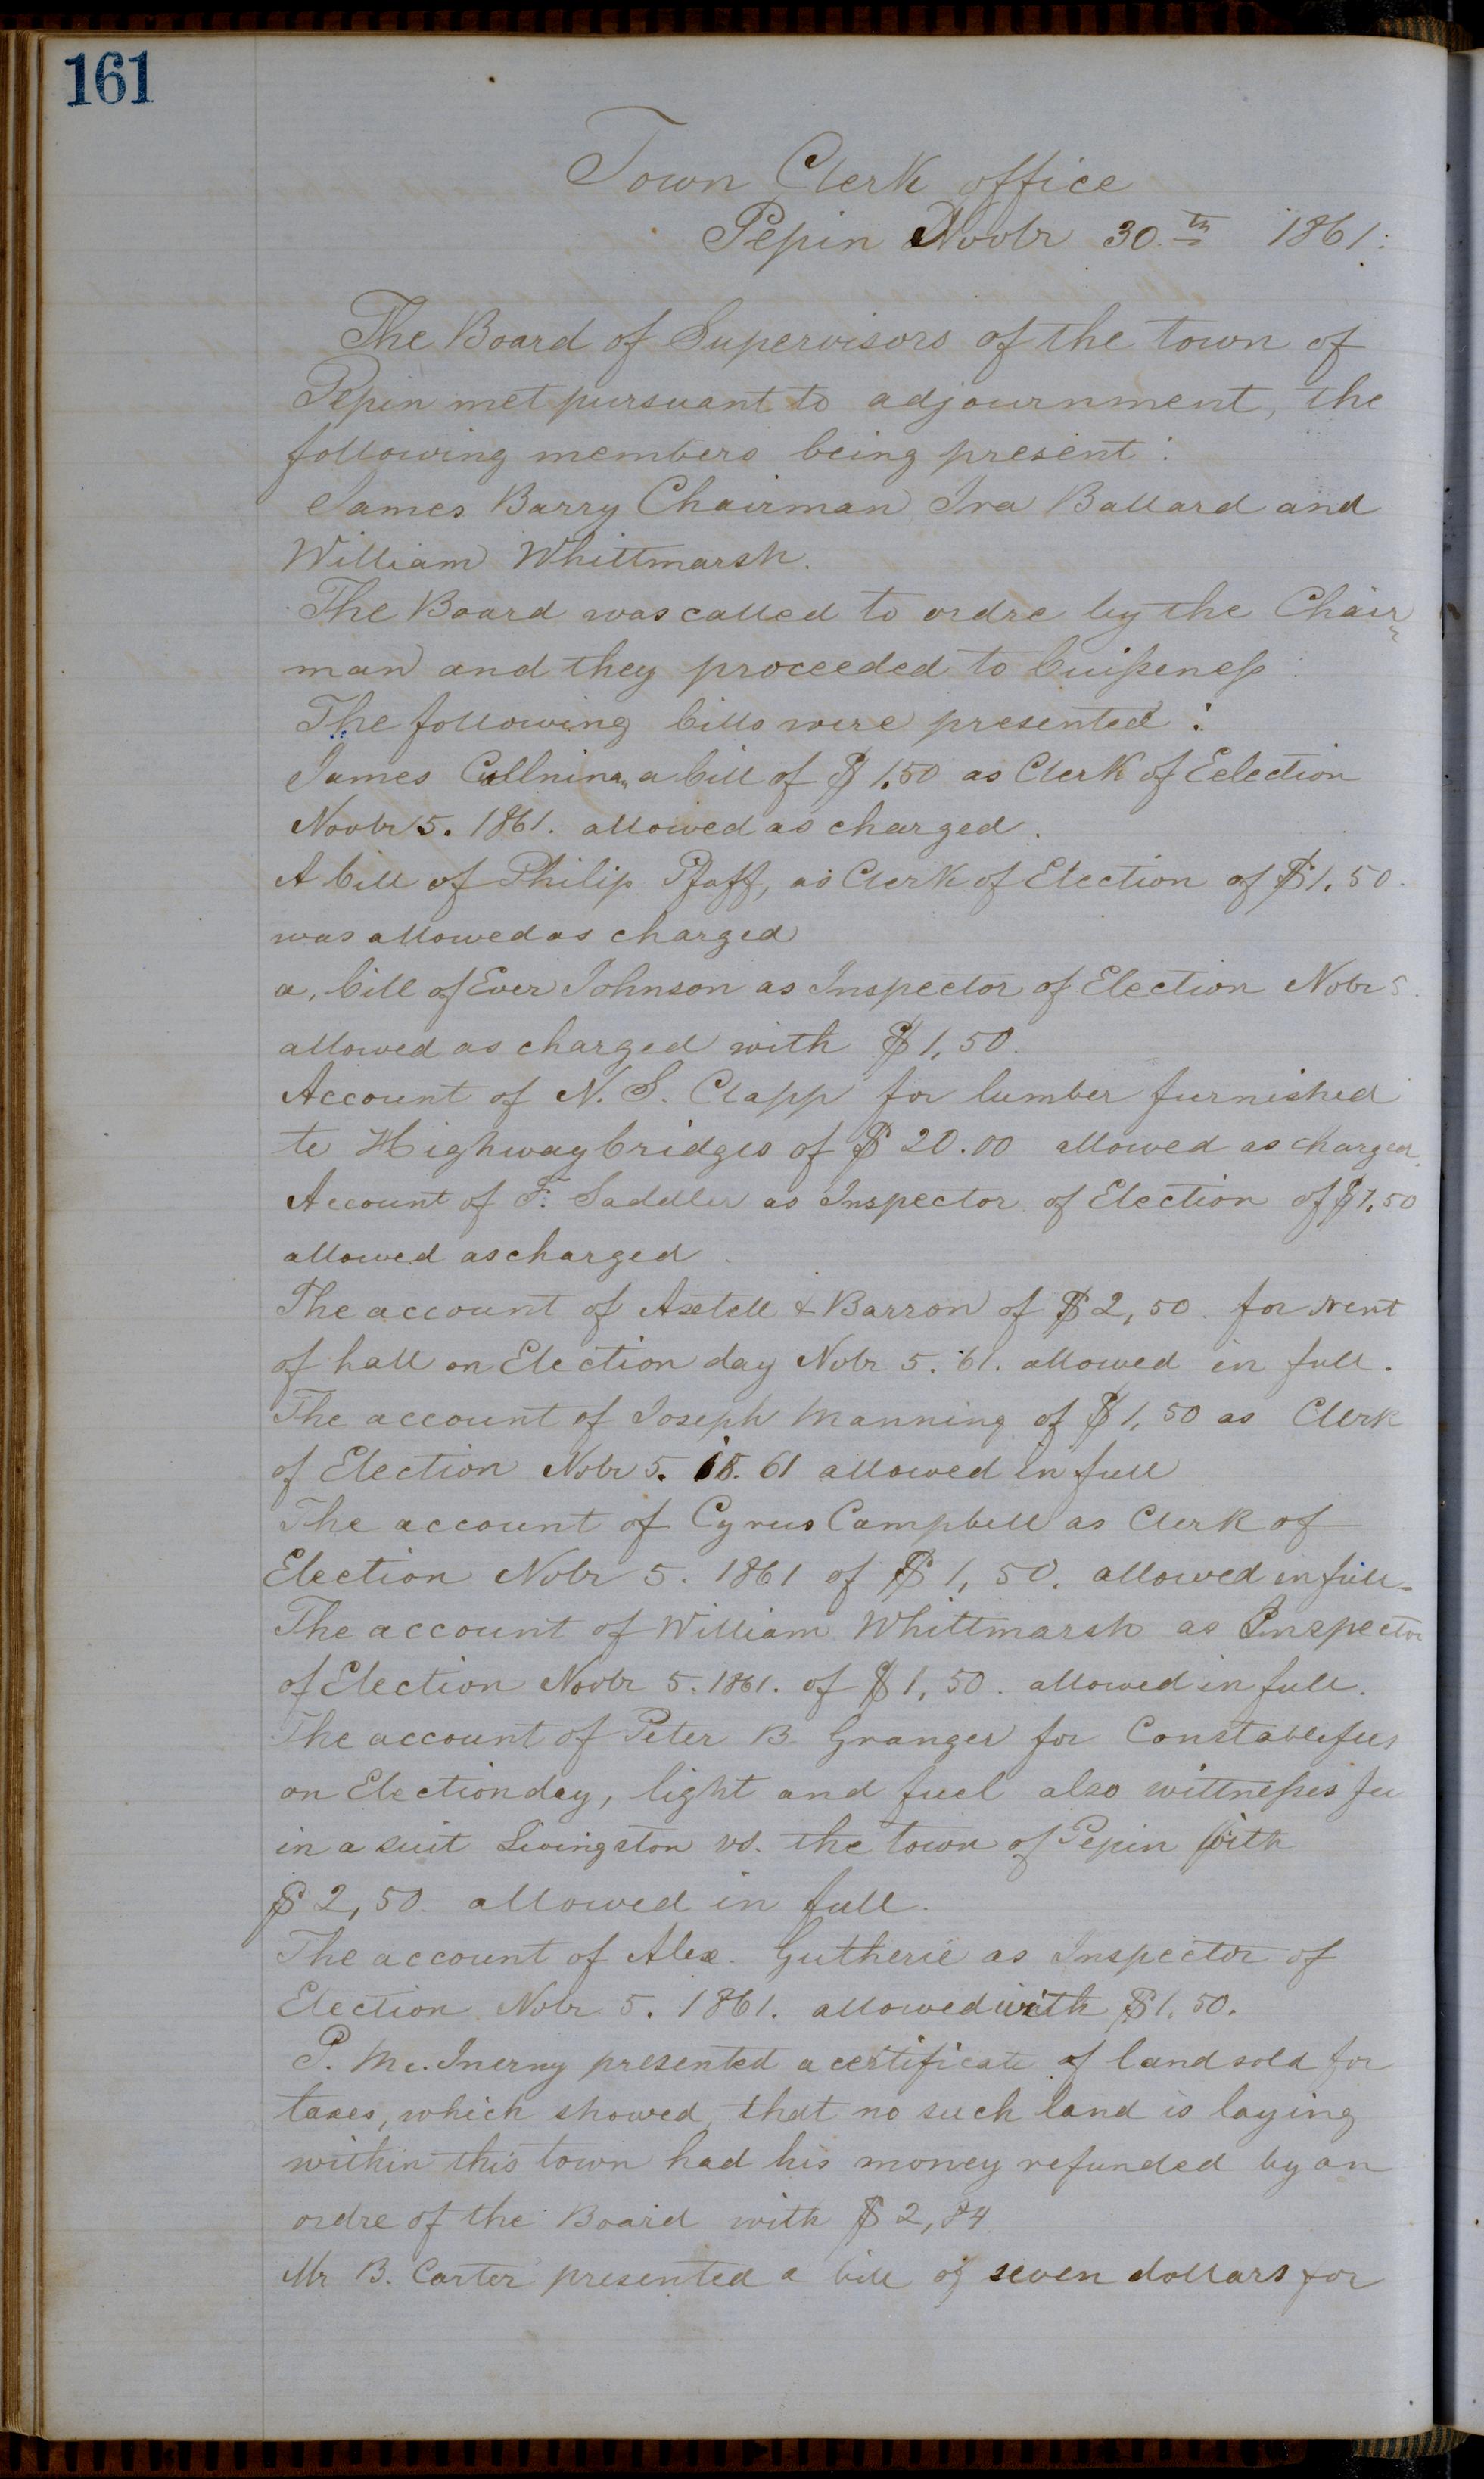 161
Town Clerk office
Pepin Novbr 30.th 1861:
The Board of Supervisors of the town of
Pepin met pursuant to adjournment, the
following members being present:
James Barry Chairman Ira Ballard and
William Whittmarsh.
The Board was called to ordre by the Chair
man and they proceeded to buisseness
The following bills were presented:
James a bill of $ 1.50 as Clerk of Eelection
Novbr 5. 1861. allowed as charged.
A bill of Philip Pfaff, as Clerk of Election of $1,50.
was allowed as charged
a, bill of Ever Johnson as Inspector of Election Nobr 5.
allowed as charged with $ 1,50.
Account of N. S. Clapp for lumber furnished
te Highwaybridges of $ 20.00 allowed as charged
Account of F. Saddler as Inspector of Election of $ 1,50
allowed as charged.
The account of Axtell & Barron of $ 2,50. for rent
of hall on Election day Nobr 5. 61. allowed in full.
The account of Joseph Manning of $ 1,50 as Clerk
of Election Nobr 5. 18. 61 allowed in full
The account of Cyrus Campbell as Clerk of
Election Nobr 5. 1861 of $ 1,50. allowed in full.
The account of William Whittmarsh as Inspector
of Election Novbr 5. 1861. of $ 1,50. allowed in full.
The account of Peter B. Granger for Constablefees
on Electionday, light and fuel also wittnesses fee
in a suit Livingston vs. the town of Pepin with
$ 2,50. allowed in full.
The account of Alex. Gutherie as Inspector of
Election Nobr 5. 1861. allowed with $ 1.50.
P. Mc. Inerny presented a certificate of land sold for
taxes, which showed, that no such land is laying
within this town had his money refunded by an
ordre of the Board with $ 2,84
Mr B. Carter presented a bill of seven dollars for